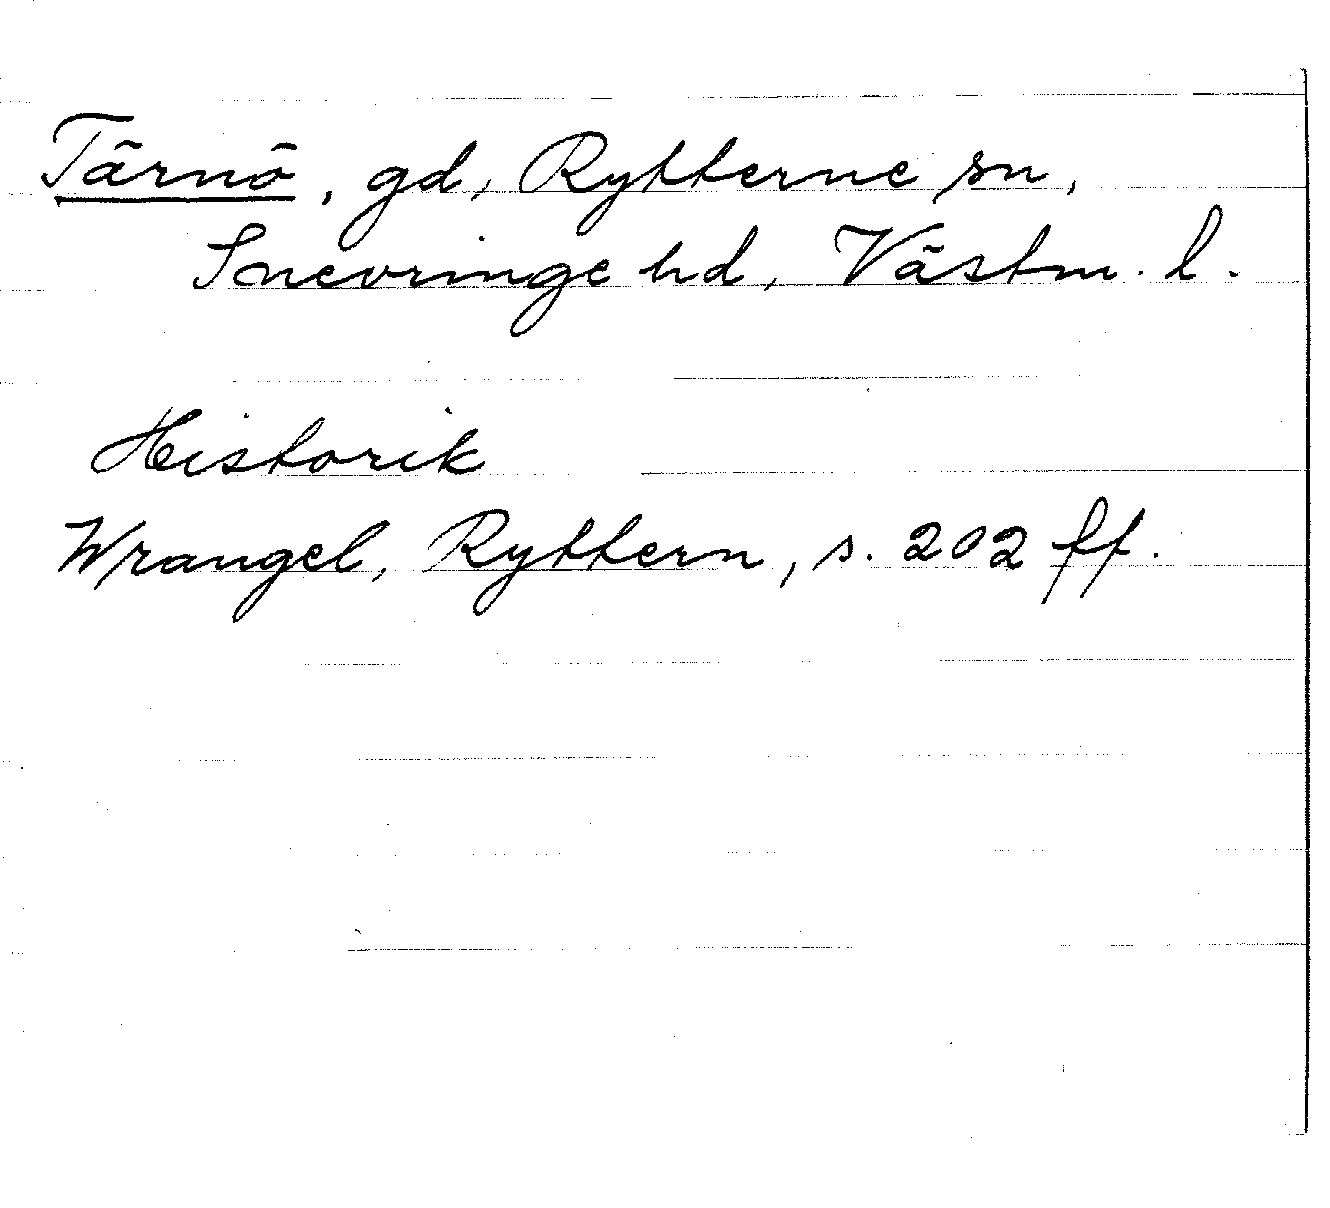 Tärnö, gd, Rytterne sn,
Snevringe hd, Västm. l.
Historik
Wrangel, Ryttern, s. 202 ff.